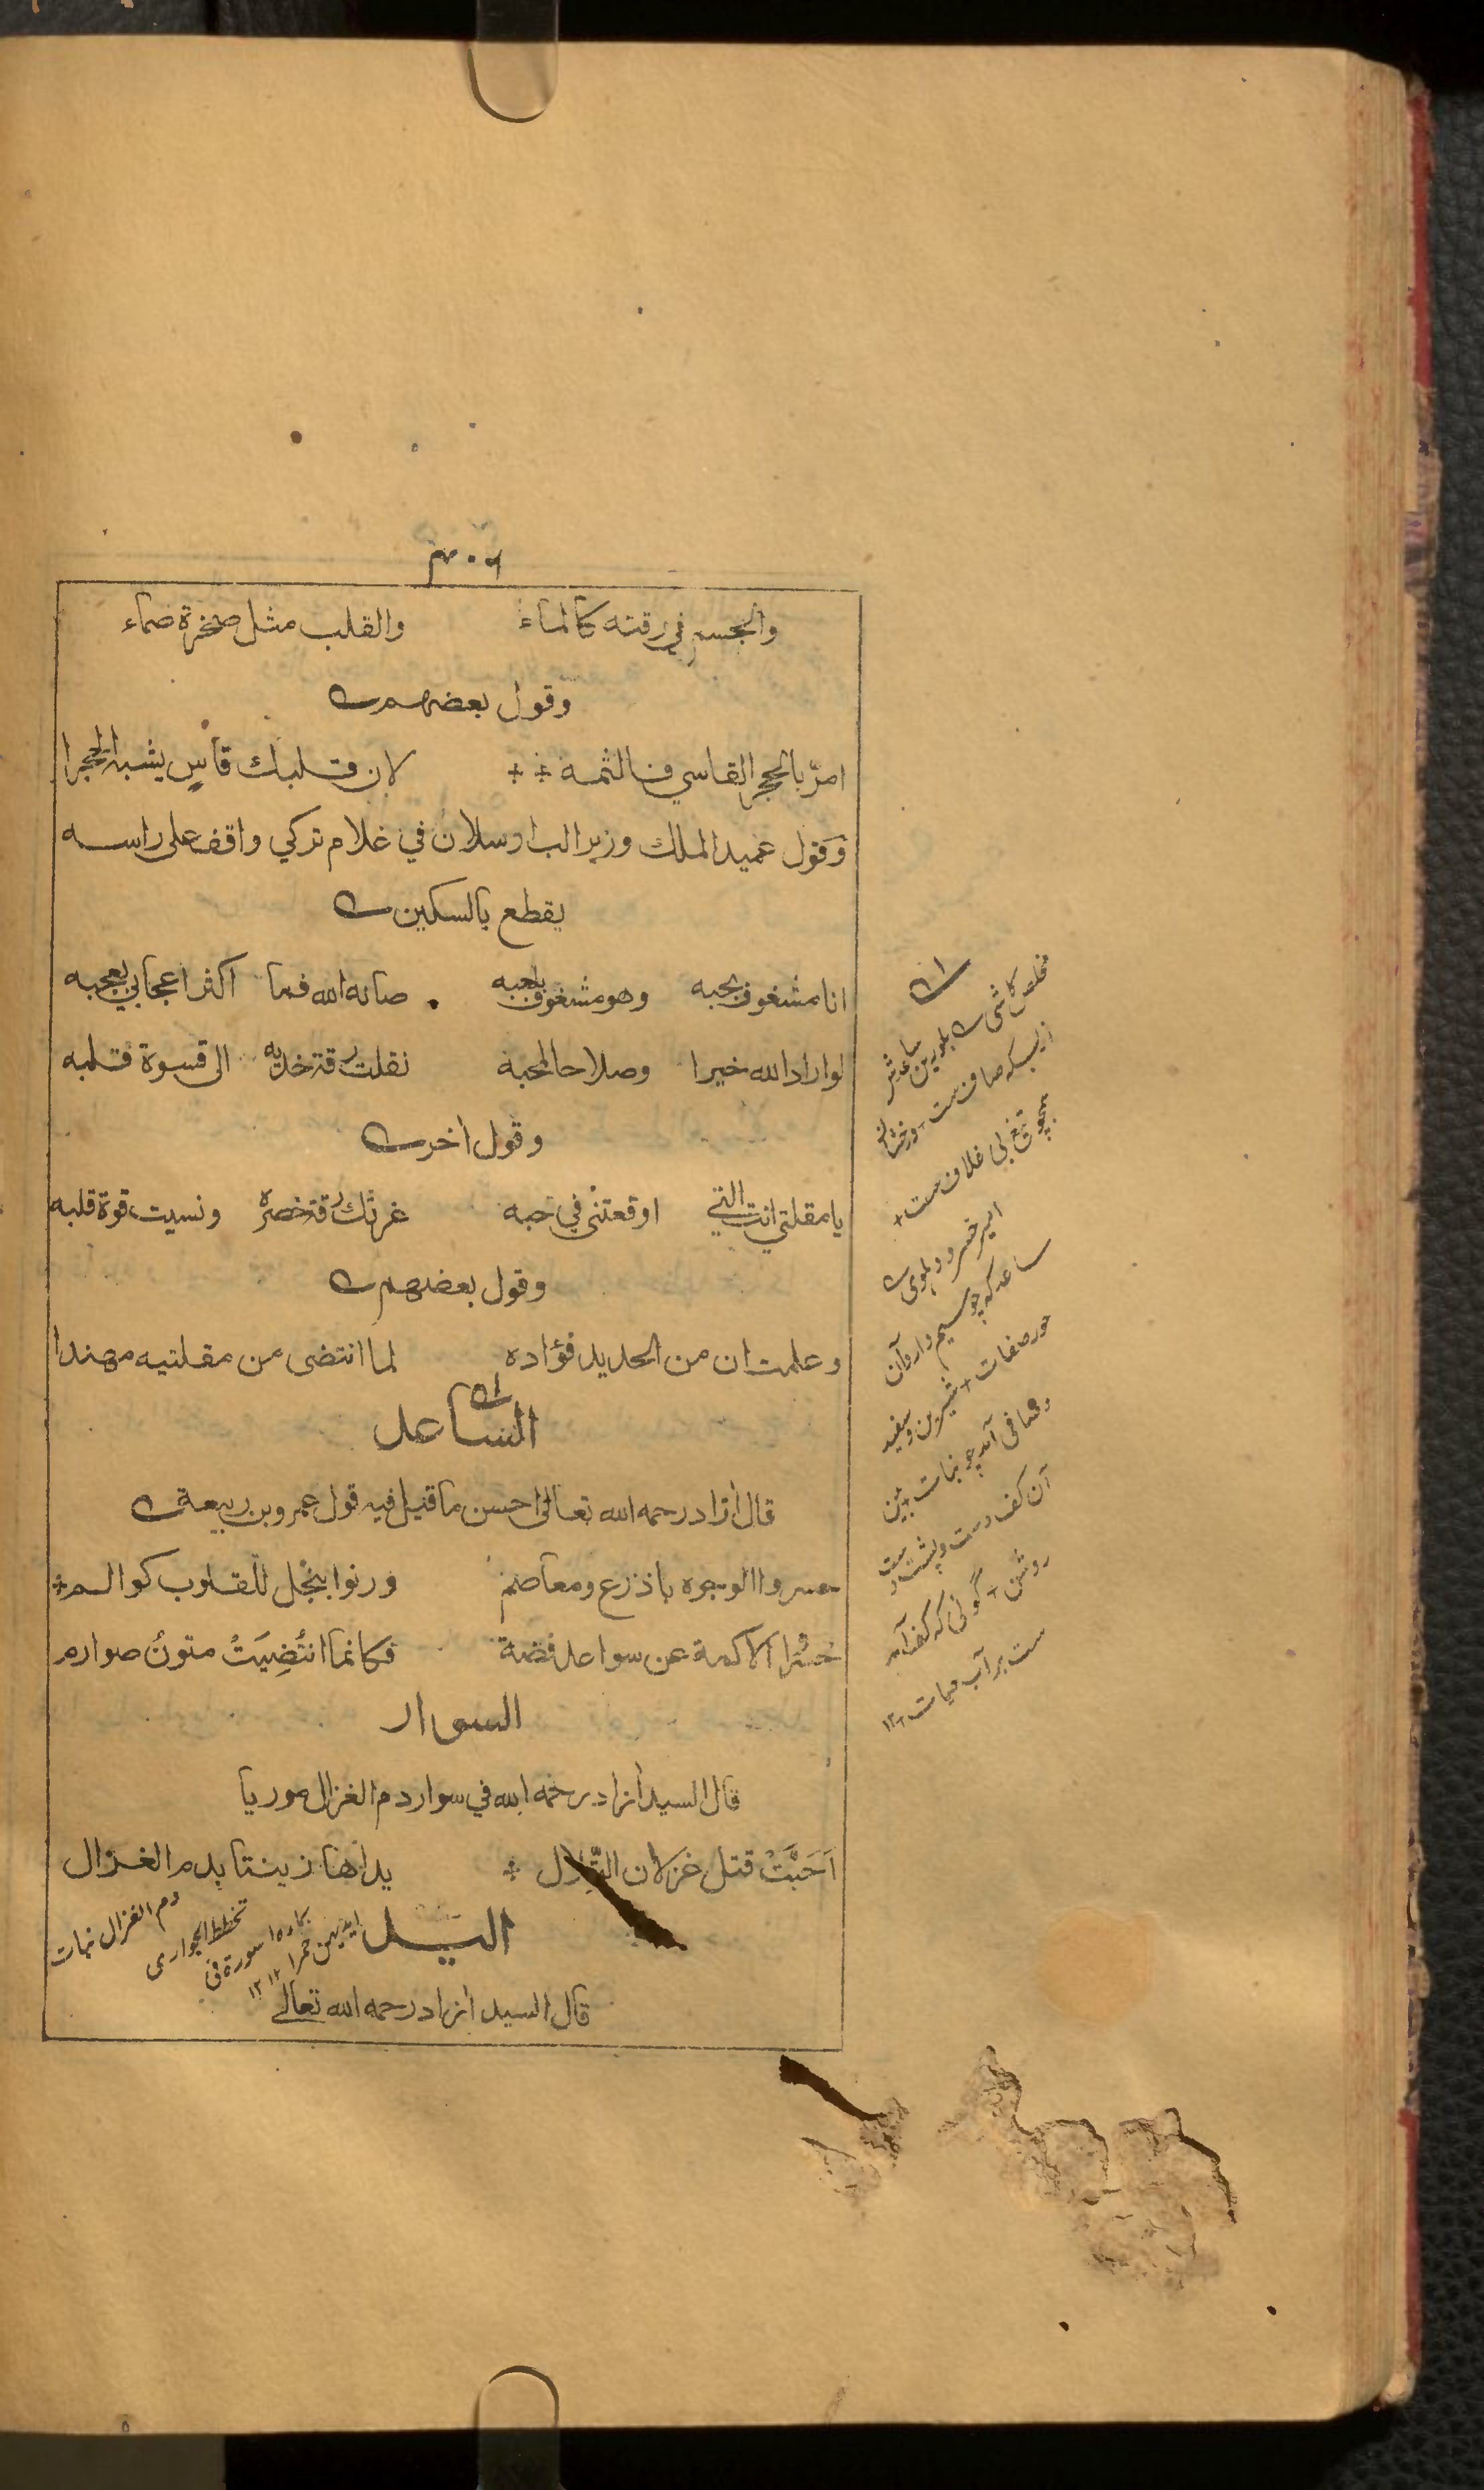 والجسم في رقته كالماء والقلب مثل صخرة صماء
وقول بعضهم
امرّ بالحجر القاسي فالثمه لان قلبك قاسٍ يشبه الحجرا
وقول عميد الملك وزير الب ارسلان في غلام تركي واقف على راسه
يقطع بالسكين
انا مشغوف بحبه وهو مشغوف بلعبه صانه الله فما اكثر اعجابي بعجبه
لو اراد الله خيرا وصلاحا لمحبه نقلت رقة خديه الى قسوة قلبه
وقول اخر
يا مقلتي انت التي اوقعتني في حبه غرتك رقة خصره ونسيت قوة قلبه
وقول بعضهم
وعلمت ان من الحديد فؤاده لما انتضى من مقلتيه مهندا
الساعد
قال ازاد رحمه الله تعالى احسن ما قيل فيه قول عمرو بن ربيعة
حسروا الوجوه باذرع ومعاصم ورنوا بنجل للقلوب كوالم
حسروا الاكمة عن سواعد فضة فكانما انتُضِيَتْ متونُ صوارم
السوار
قال السيد ازاد رحمه الله في سوار دم الغزال موريا
اَحَبَّتْ قتل غزلان يداها زينتا بدم الغزال
النيل
قال السيد ازاد رحمه الله تعالے
مخلص كاشی بلورين ساعدش
ز بسكه صاف ست و رخشان
همچو تيغ بی غلاف ست
امير خسرو دهلوی
ساعد كه چو سيم دارد آن
حور صفات شيرين و سفيد
و صافی آمد چو نبات بين
آن كف دست و پشت دست
روشن گوئی كه كف آمد
ست بر آب حيات ١٢
دم الغزال نبات
تخطط الجواری
بمائه اسورة فی
ايديهن حمرا ١٢